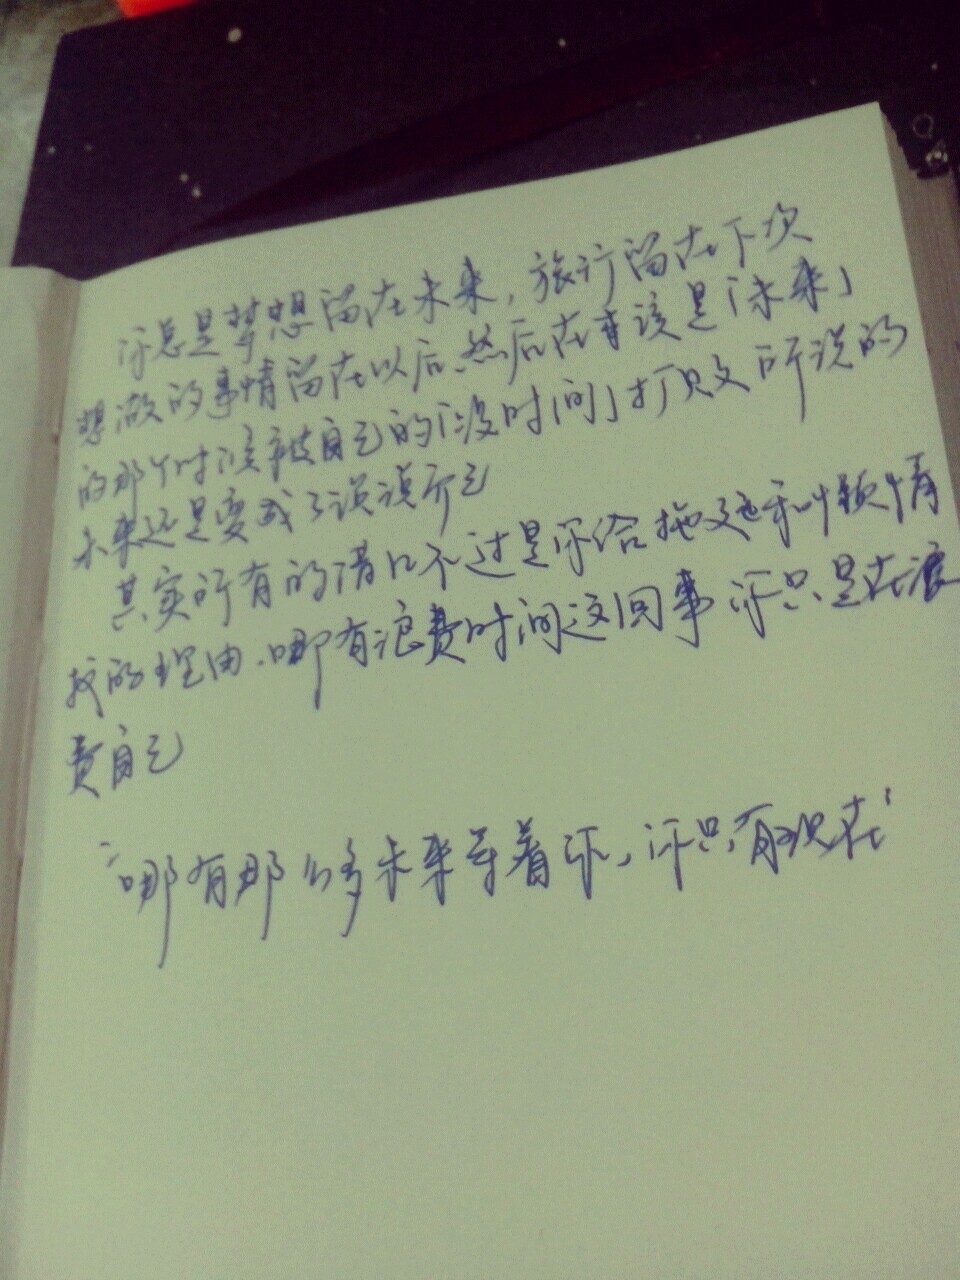 你总是梦想留在未来，旅行留在下次
想做的事情留在以后、然后在本该是「未来」
的那个时候被自己的「没时间」打败 所说的
未来还是变成了说说而已
其实所有的借口不过是你给拖延和懒惰
找的理由．哪有浪费时间这回事 你只是在浪
费自己
"哪有那么多未来等着你，你只有现在"